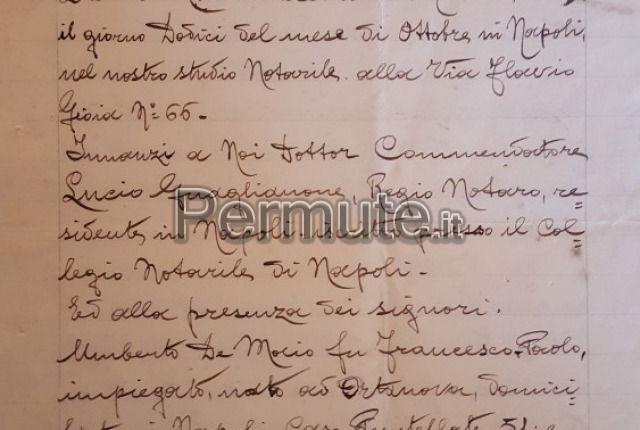 il giorno Dodici del mese di Ottobre in Napoli,
nel nostro studio Notarile alla Via Flavio
Gioia N.º 66.-
Innanzi a Noi Dottor Commendatore
Lucio Guaglianone, Regio Notaro, re=
sidente in Napoli iscritto presso il Col=
Permute.it
legio Notarile di Napoli.-
Ed alla presenza dei signori.
Umberto De Mocio fu Francesco-Paolo,
impiegato, nato ad Ortanova, domici=
Napoli